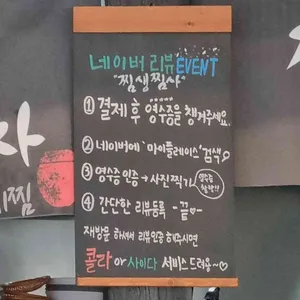 네이버 리뷰 EVENT
"찜생찜사"
① 결제 후 영수증을 챙겨주세요.
② 네이버에 '마이플레이스' 검색
③ 영수증 인증 → 사진찍기
④ 간단한 리뷰등록 - 끝♡-
재방문 하셔서 리뷰인증 해주시면
콜라 or 사이다 서비스 드려용~♡
찜